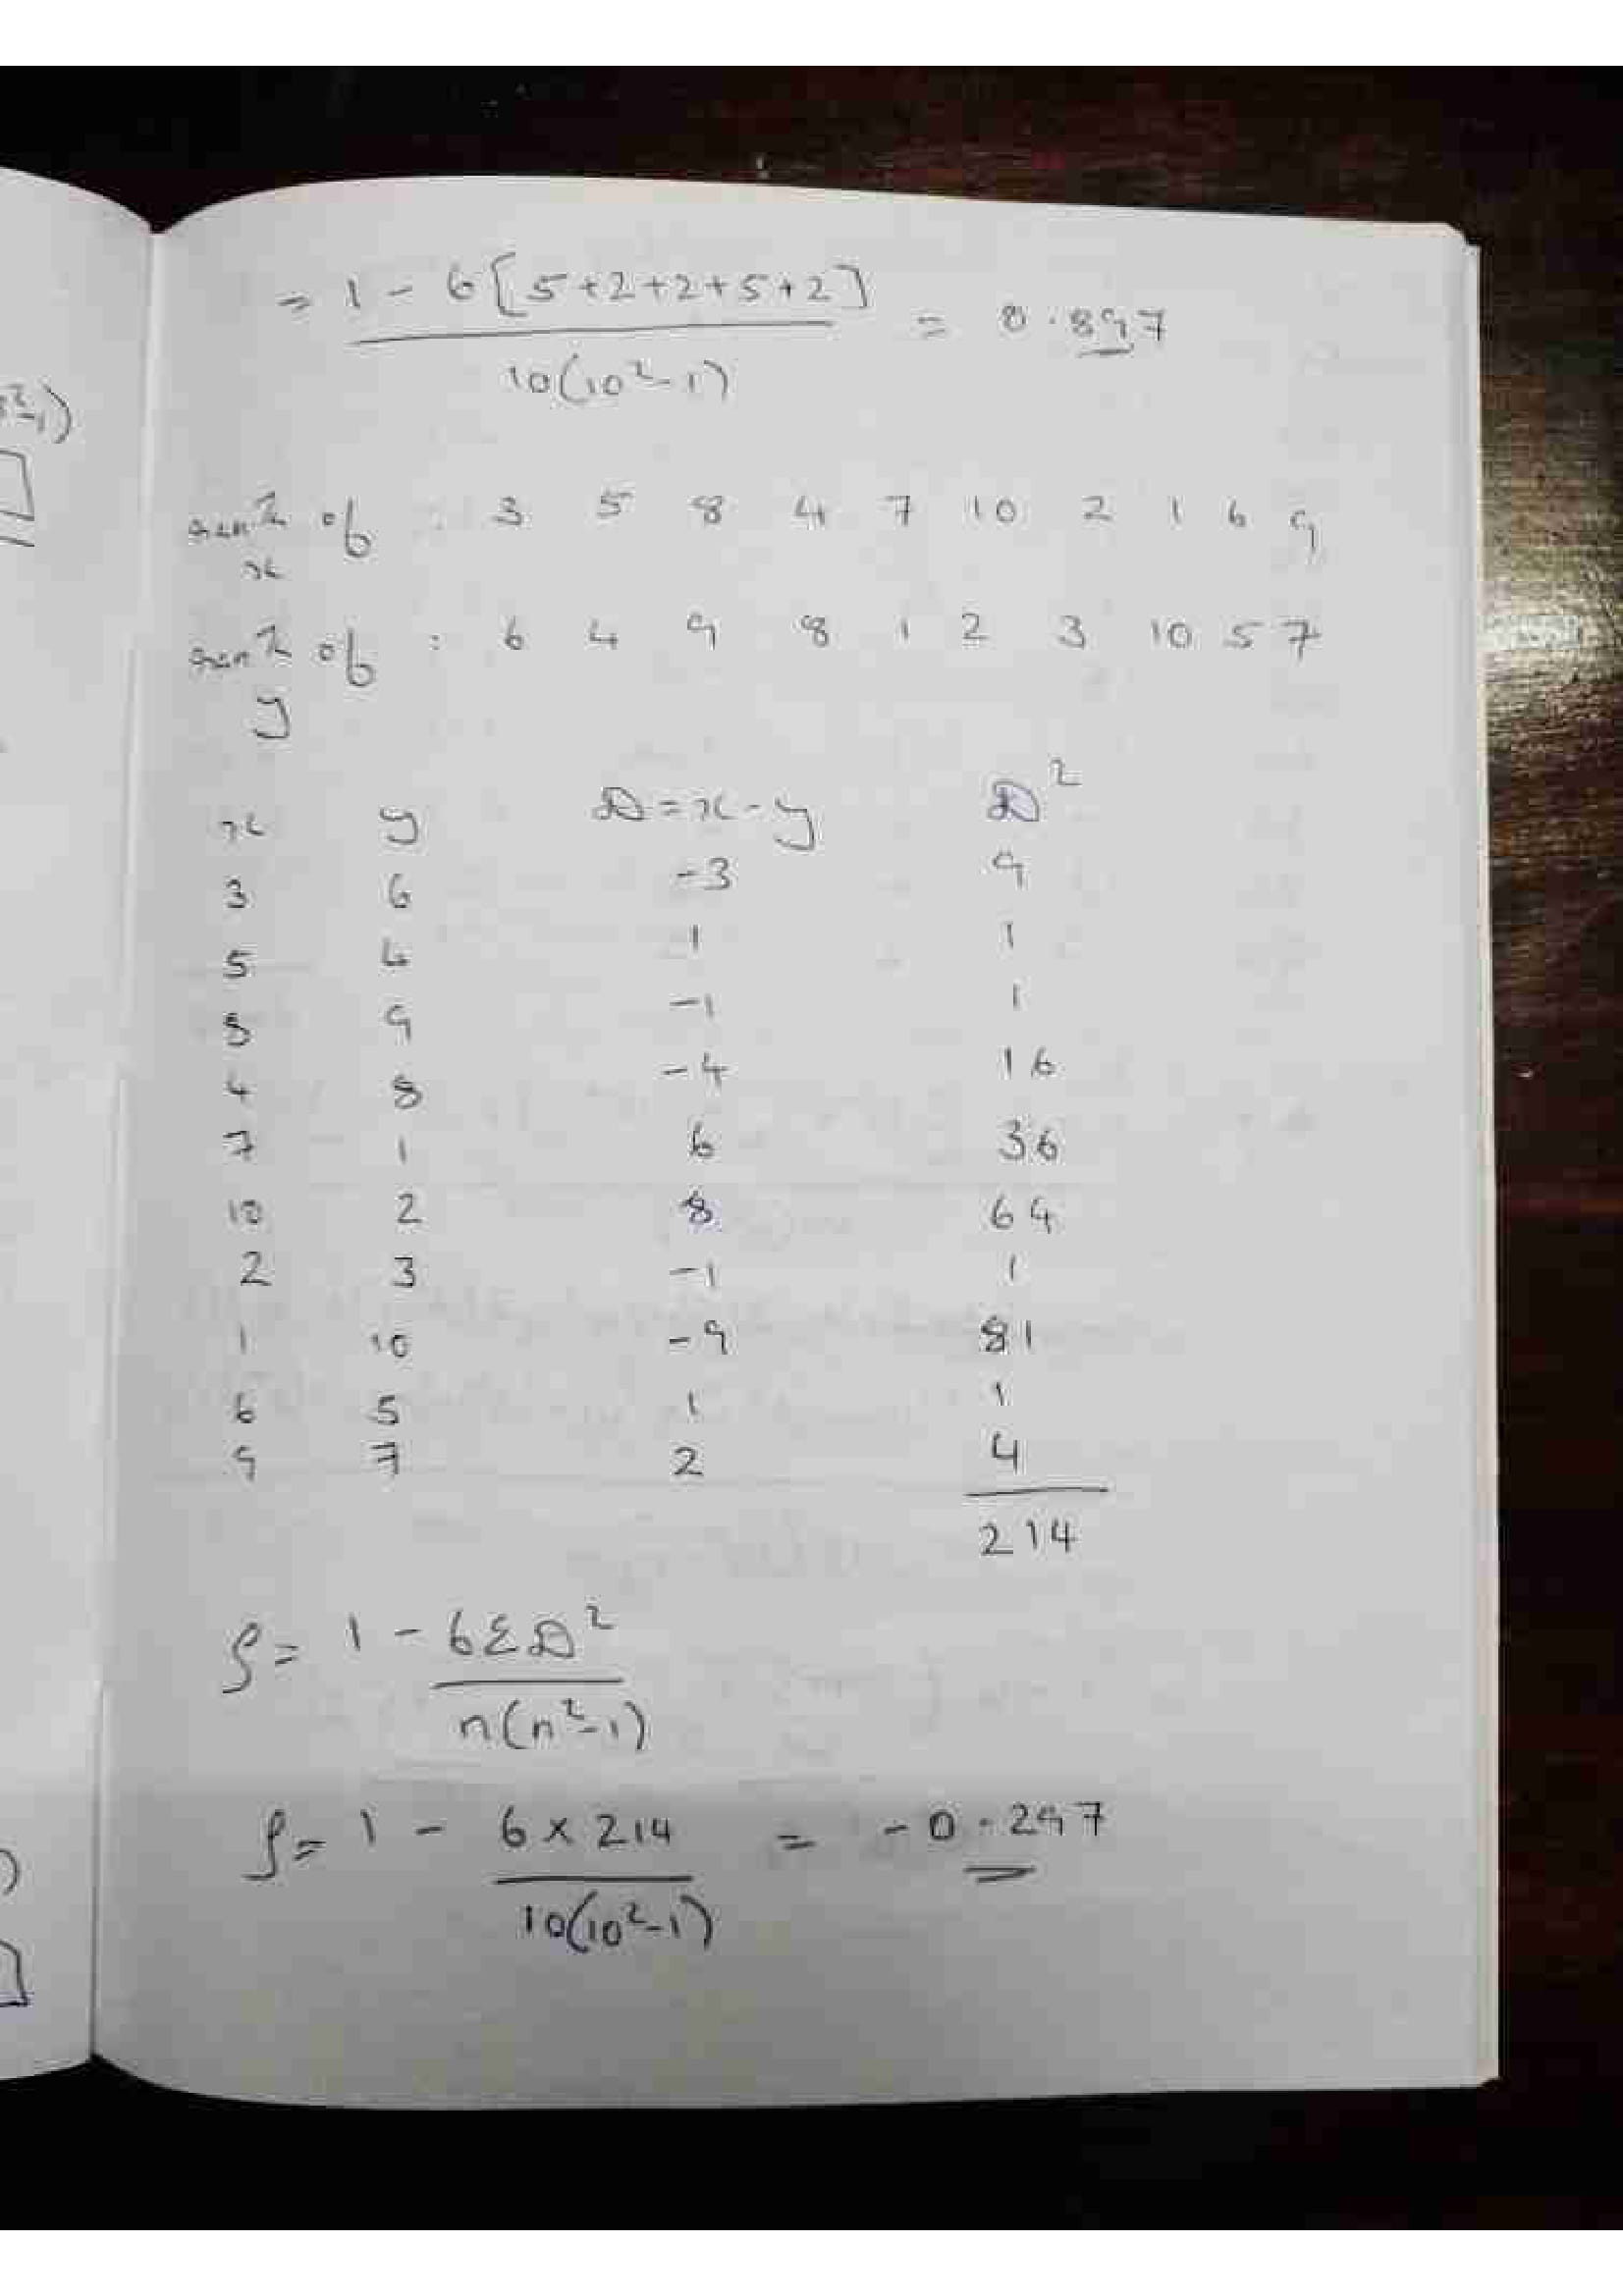 = 1 - 6[5+2+2+5+2]
10(10²-1)
= 0.897
rank of x : 3 5 8 4 7 10 2 1 6 9
rank of y : 6 4 9 8 1 2 3 10 5 7
x y D=x-y D²
3 6 -3 9
5 4 1 1
8 9 -1 1
4 8 -4 16
7 1 6 36
10 2 8 64
2 3 -1 1
1 10 -9 81
6 5 1 1
9 7 2 4
214
ρ= 1 - 6ΣD²
n(n²-1)
ρ= 1 - 6 x 214 = -0.297
10(10²-1)